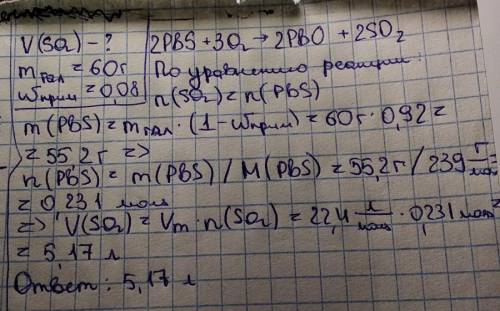 V(SO₂) - ? 2PBS + 3O₂ → 2PBO + 2SO₂
mгал = 60г По уравнению реакции:
wприм = 0,08 n(SO₂) = n(PBS)
m(PBS) = mгал · (1 - wприм) = 60г · 0,92 =
= 55,2г =>
n(PBS) = m(PBS) / M(PBS) = 55,2г / 239 г/моль =
= 0,231 моль
=> V(SO₂) = Vm · n(SO₂) = 22,4 л/моль · 0,231 моль =
= 5,17 л
Ответ: 5,17 л